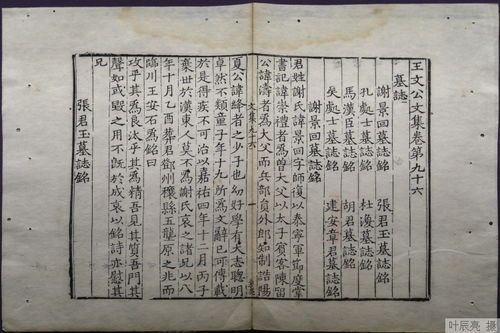 王文公文集卷第九十六
墓誌
謝景回墓誌銘　張君玉墓誌銘
孔處士墓誌銘　杜渙墓誌銘
馬漢臣墓誌銘　胡君墓誌銘
矣處士墓誌銘　建安章君墓誌銘
謝景回墓誌銘
君姓謝氏諱景回字師復以泰寧軍節度掌
書記諱崇禮者為曾大父以太子賓客陳留
公諱濤者為大父而兵部員外郎知制誥陽
夏公諱絳者之少子也幼好學有大志聰明
卓然不類童子年十九所為文辭已可傳載
於是得疾不可治以嘉祐四年十二月丙子
棄世於漢東人莫不為謝氏哀之諸兄以八
年十月乙酉葬君鄧州穰縣五壟原之兆而
臨川王安石為銘曰
攻乎其為良汰乎其為精吾見其質吾聞其
聲如或毀之用不既於成哀以銘詩亦慰其
兄
張君玉墓誌銘
文集九十六
叶辰亮 摄